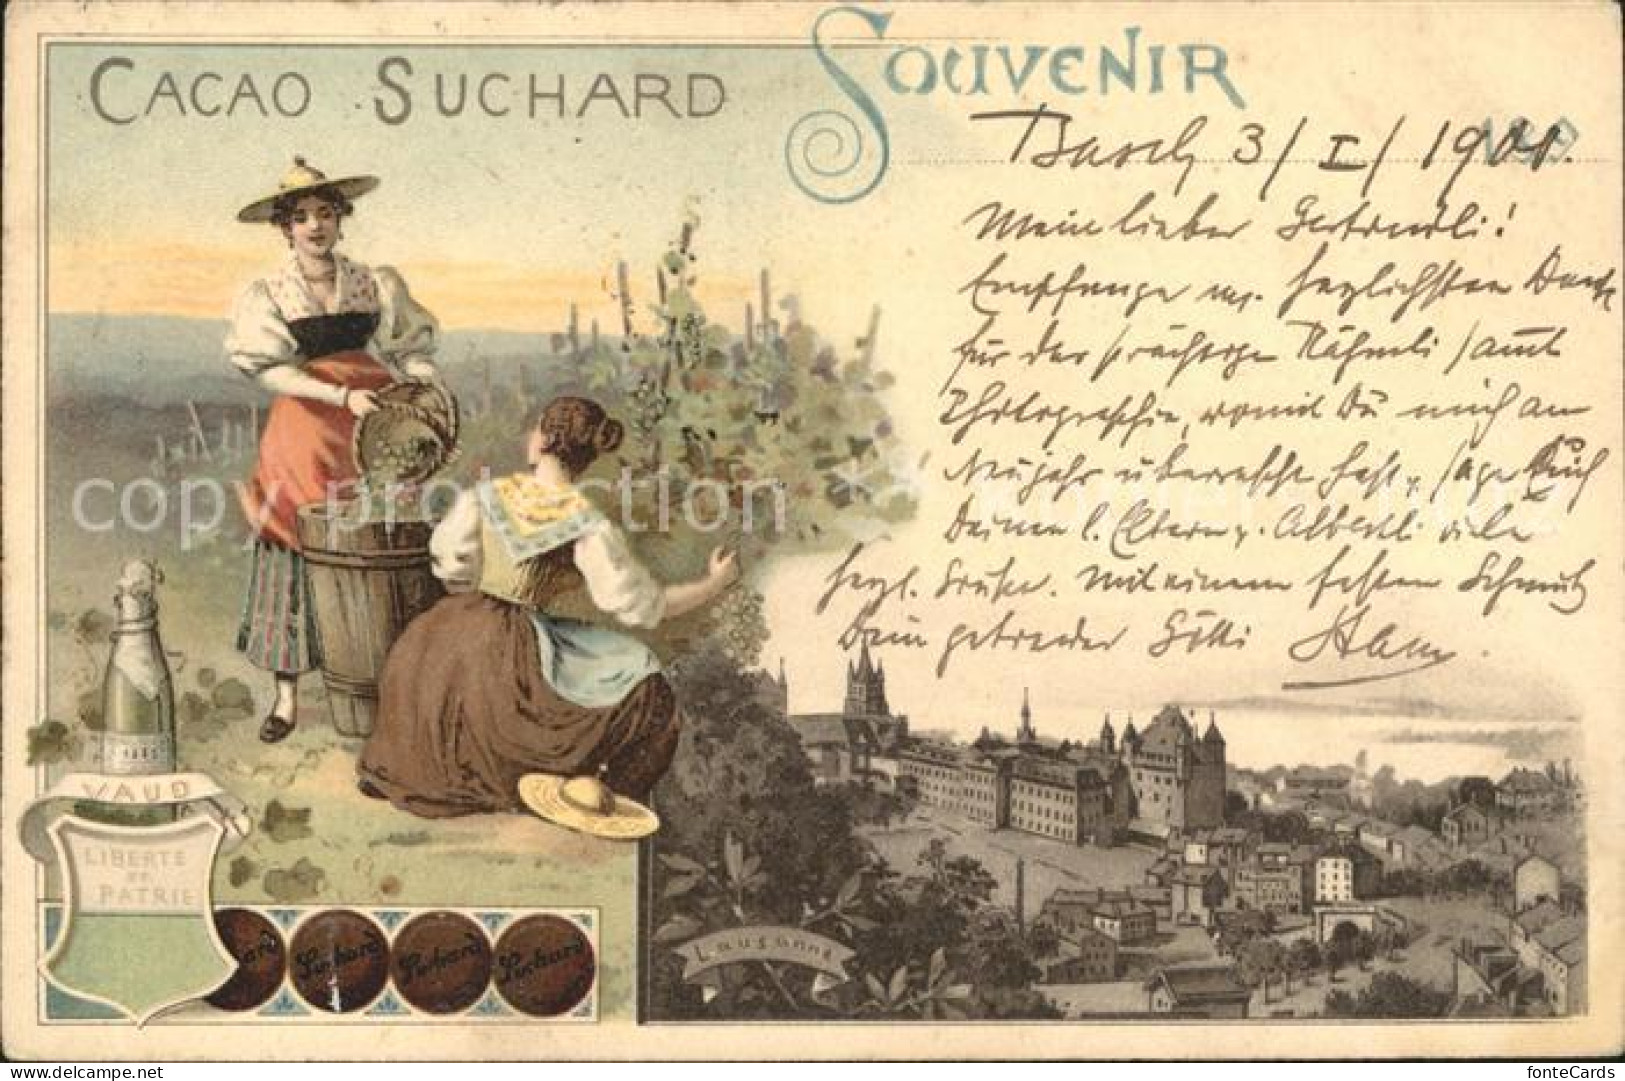 CACAO SUCHARD
SOUVENIR
189
Basel, 3/I/1901.
Mein lieber
Empfange m. herzlichsten Dank
für das prächtige samt
Photographie, womit Du mich am
Neujahr überrascht hast, sage auch
Deinen l. Eltern u. Albertli viele
herzl. Grüße. Mit einem festen Schmutz
Dein getreuer Götti
copy protection
VAUD
LIBERTE
ET
PATRIE
Suchard
Suchard
Suchard
Suchard
Lausanne
fonteCards